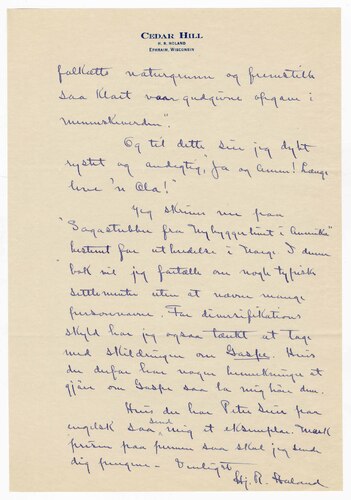 CEDAR HILL
H. R. HOLAND
EPHRAIM, WISCONSIN
folkets naturgrunn og fremstille
saa klart vaar gudgivne opgave i
menneskeverden".
Og til dette sier jeg dypt
rystet og andegtig, "Ja og amen! Lenge
leve 'n Ola!"
Jeg skriver nu paa
"Sagastubber fra Nybyggerlivet i Amerika"
bestemt for utgivelse i Norge. I denne
bok vil jeg fortelle om nogle typiske
settlementer uten at nevne mange
personnavne. For diversifikations
skyld har jeg ogsaa tænkt at tage
med skildringen om Gaspe. Hvis
du derfor har nogen bemerkninger at
gjøre om Gaspe saa la mig høre dem.
Hvis du har Peter paa
engelsk saa send mig et eksemplar. Merk
prisen paa permen saa skal jeg sende
dig pengene. — Venligst
Hj. R. Holand